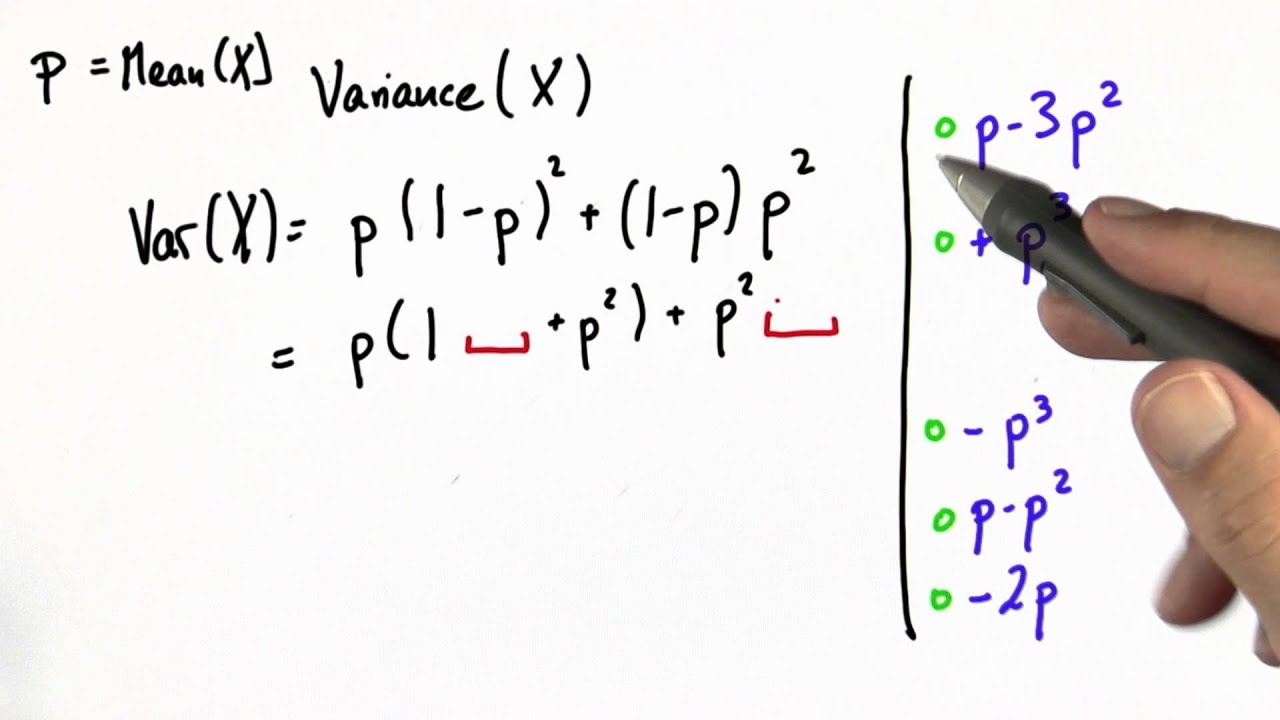 p = Mean(X) Variance(X)
Var(X) = p(1-p)² + (1-p)p²
= p(1 ⎵ + p²) + p² ⎵
o p - 3p²
o + p³
o - p³
o p - p²
o - 2p